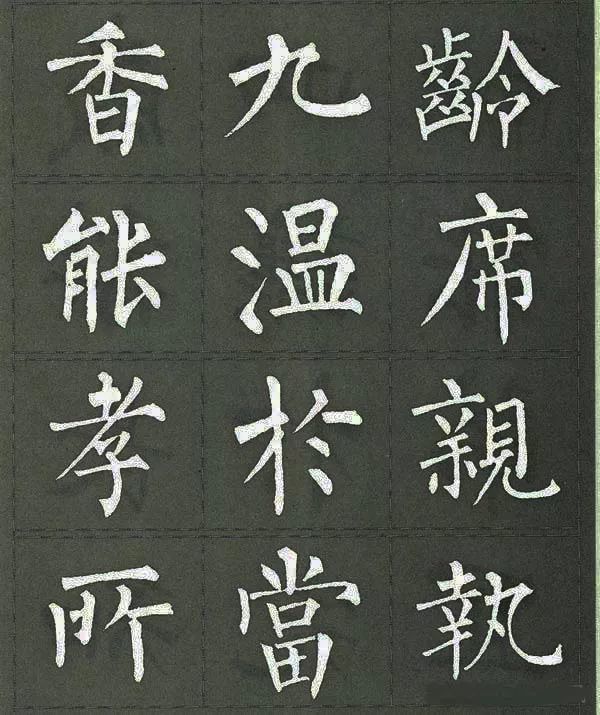 香九齡
能温席
孝於親
所當執